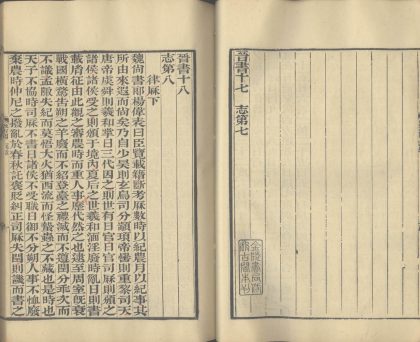 晉書十七　志第七
金陵書局仿
汲古閣本刊
晉書十八
志第八
律厤下
魏尚書郎楊偉表曰臣覽載籍斷考厤數時以紀農月以紀事其
所由來遐而尚矣乃自少昊則玄鳥司分顓頊帝嚳則重黎司天
唐帝虞舜則羲和掌日三代因之則世有日官日官司厤則頒之
諸侯諸侯受之則頒于境內夏后之世羲和湎淫廢時亂日則書
載胤征由此觀之審農時而重人事厤代然之也逮至周室既衰
戰國橫騖告朔之羊廢而不紹登臺之禮滅而不遵閏分乖次而
不識孟陬失紀而莫悟大火猶西流而怪蟄蟲之不藏也是時也
天子不協時司厤不書日諸侯不受職日御不分朔人事不恤廢
棄農時仲尼之撥亂於春秋託褒貶糾正司厤失閏則譏而書之